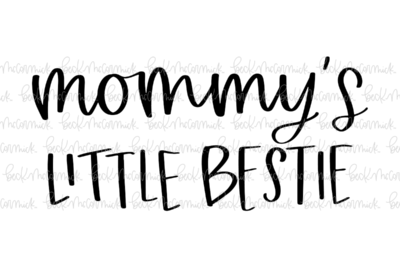 mommy's
LITTLE BESTIE